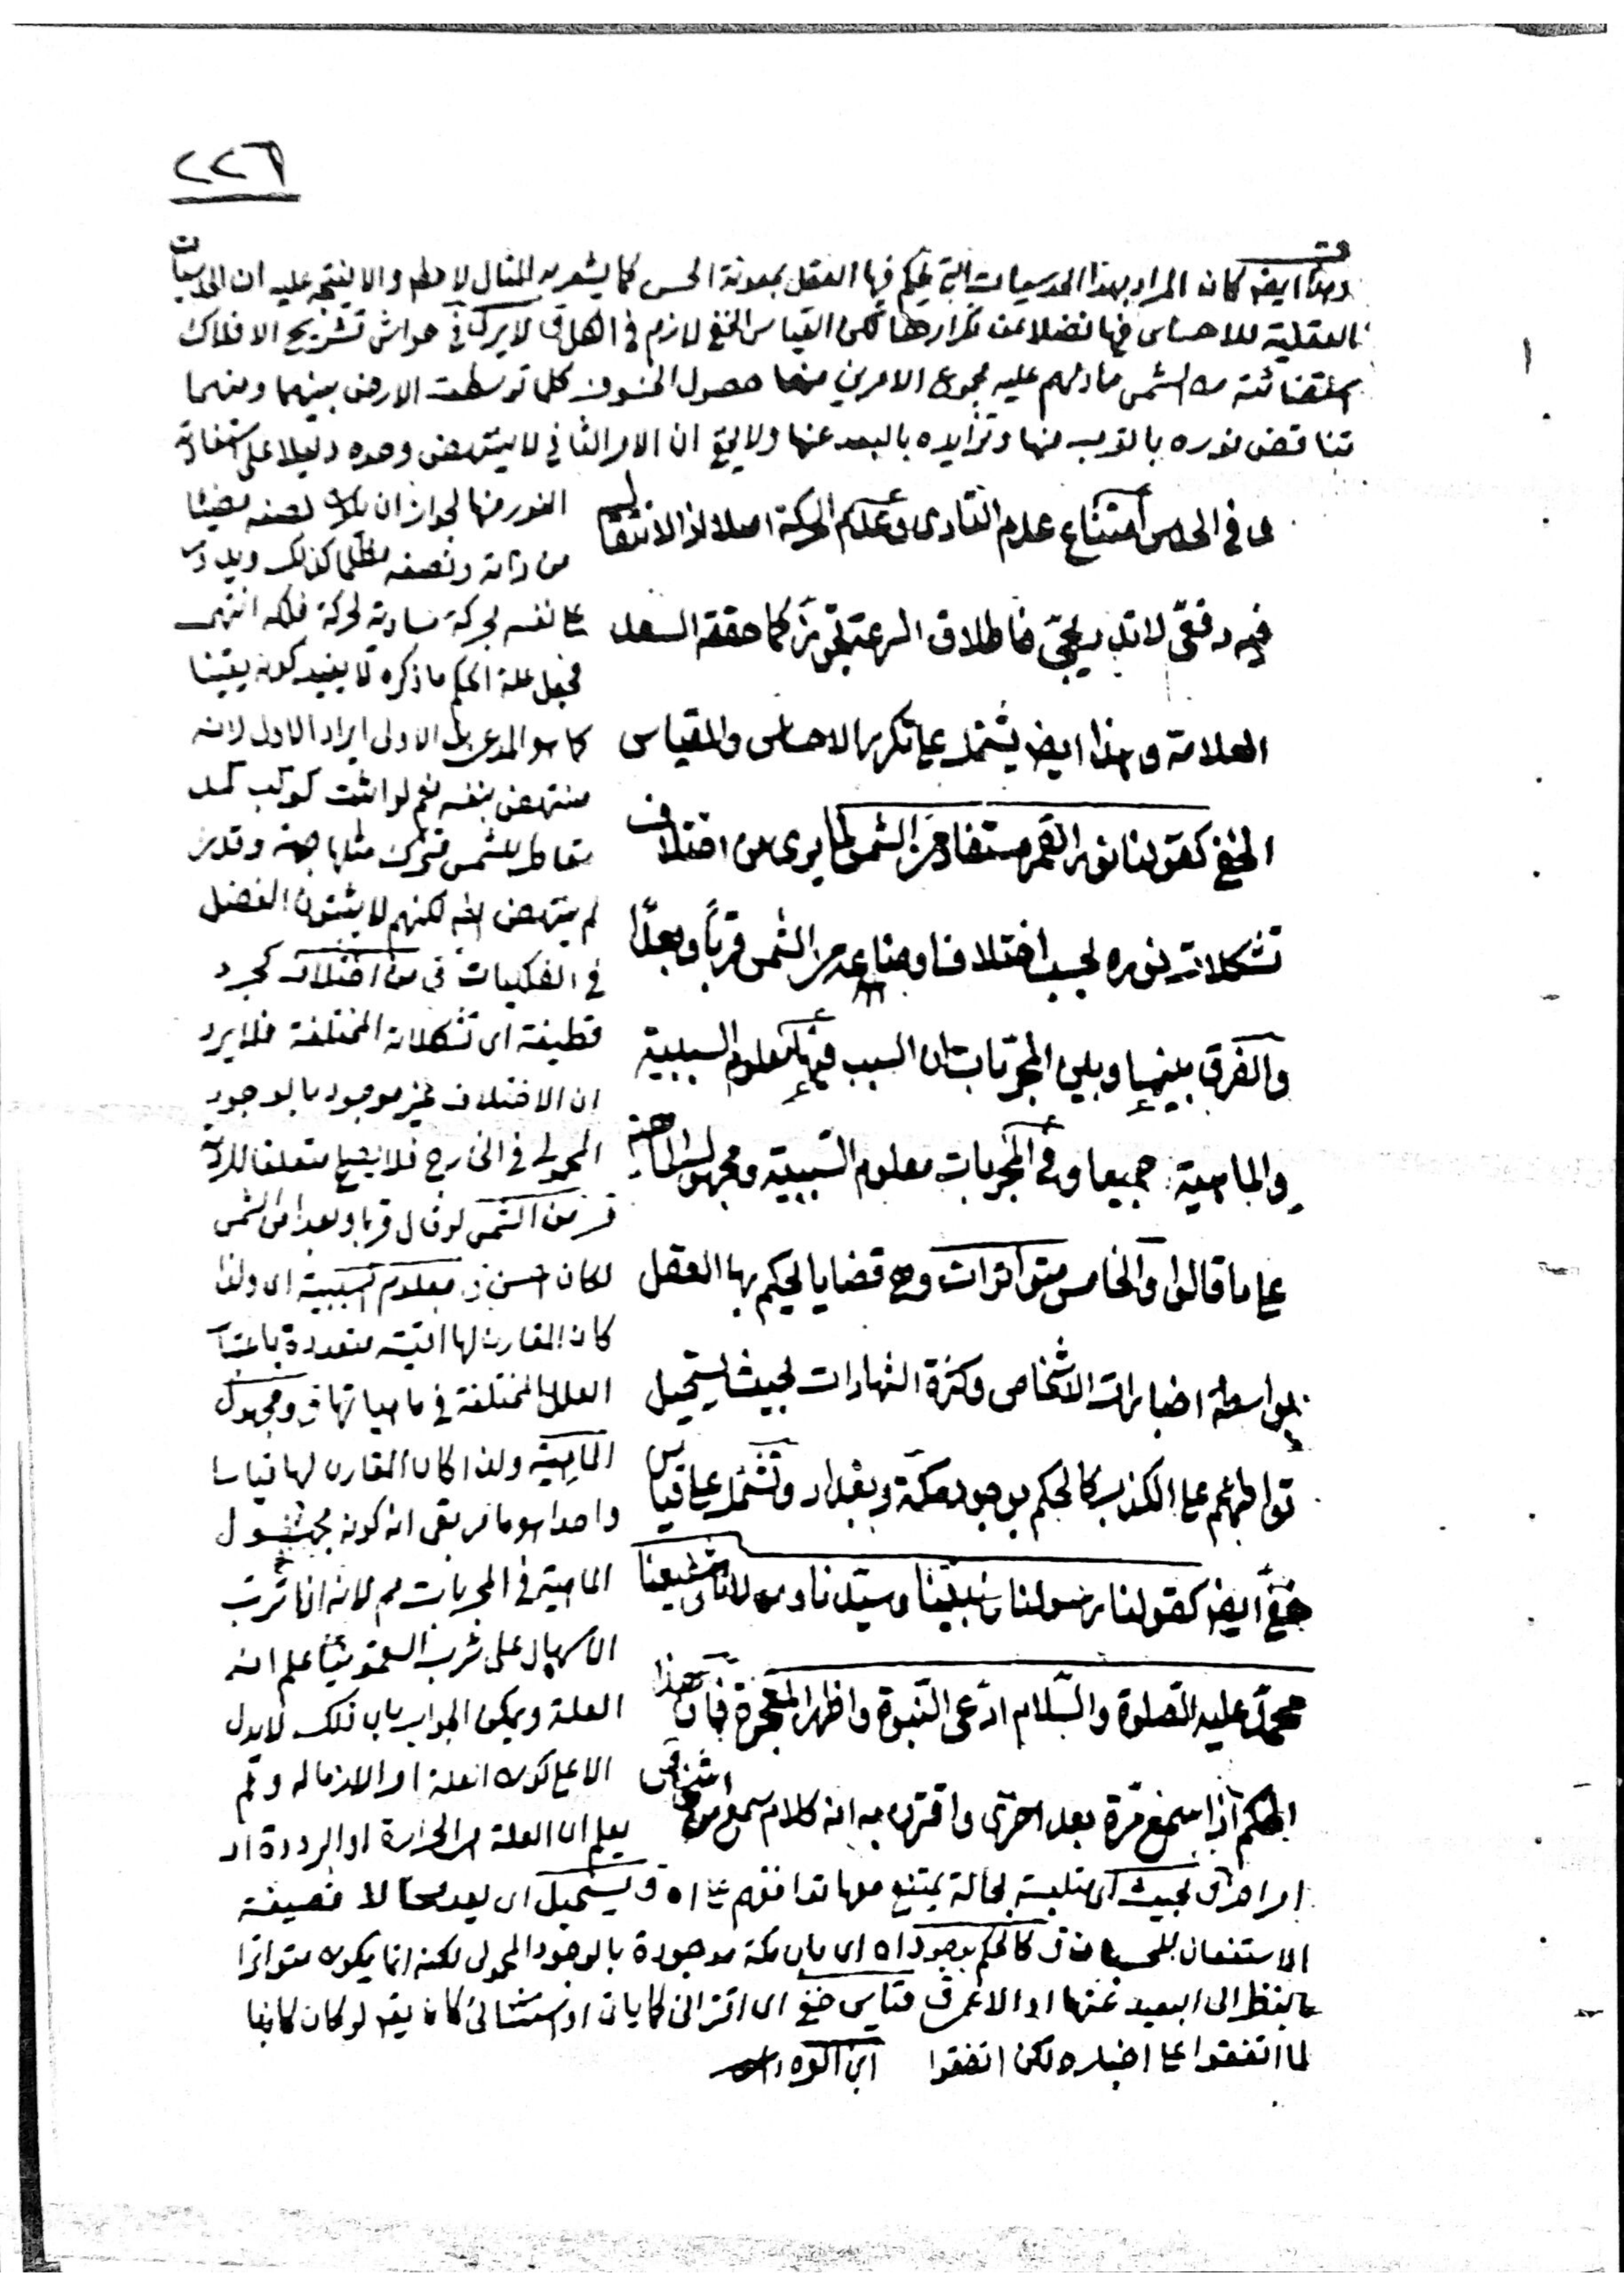 ٢٢٦
وهذا ايضه كان المراد بهذا الحدسيات التي يحكم فيها العقل بمعونة الحس كما يشعر به المثال لا مطلقا والا يتجه عليه ان الحدسيات
العقلية لا احساس فيها فضلا عن تكرارها لكن القياس الخفي لازم في الكل ق لا يرى في حواشي تشريح الافلاك
الشمس مادلهم عليه مجموع الامرين منهما حصول الخسوف كلما توسطت الارض بينهما ومنهما
تناقص نوره بالقرب منها وتزايده بالبعد عنها ولا يخ ان الامر الثاني لا ينتهض وحده دليلا على استفادة
ى في الحدس امتناع عدم التادى وعدم الحركة اصلا اذ الانتقال
فيه دفعى لا تدريجى فاطلاق السرعة تجوز كما حققه السعد
العلامة وهذا ايضا يشتمل على تكرر الاحساس والقياس
الخفي كقولنا نور القمر مستفاد من الشمس لما يرى من اختلاف
تشكلات نوره بحسب اختلاف اوضاعه من الشمس قربا وبعدا
والفرق بينهما وبين المجربات ان السبب فيها معلوم السببية
والماهية جميعا وفى المجربات معلوم السببية ومجهول الماهية
على ما قالوا والخامس متواترات وهى قضايا يحكم بها العقل
بواسطة اخبارات الاشخاص وكثرة الشهادات بحيث يستحيل
تواطئهم على الكذب كالحكم بوجود مكة وبغداد وتشتمل على قياس
خفى ايضه كقولنا رسولنا ونبينا وسيدنا ومولانا وشفيعنا
محمد عليه الصلوة والسلام ادعى النبوة واظهر المعجزة فان هذا
الحكم اذا سمع مرة بعد اخرى واقترن به انه كلام سمع من اشخاص
النور منها لجواز ان يكون نصفه مضيئا
من ذاته ونصفه مظلما كذلك ويدور
على نفسه بحركة مساوية لحركة فلكه انتهى
فجعل علة الحكم ما ذكره لا يفيد كونه يقينا
كما هو المدعى بل الاولى ايراد الاول لانه
منتهض بنفسه نعم لو اثبت كوكب كمد
مقاطر للشمس متحرك مثلها جهة وقدرا
لم ينتهض ايضه لكنهم لا يثبتون الفضل
في الفلكيات ق من اختلاف كجرد
قطيفة اى تشكلاته المختلفة فلا يرد
ان الاختلاف غير موجود بالوجود
المحمولى في الخارج فلا يصلح متعلقا للرؤية
ق من الشمس لو قال قربا وبعدا من الشمس
لكان احسن ق معلوم السببية اى ولذا
كان المقارن لها اقيسة متعددة باعتبار
العلل المختلفة في ماهياتها ق ومجهول
الماهية ولذا كان المقارن لها قياسا
واحدا هو ما مر بقى انه كونه مجهول
الماهية في المجربات مم لانه اذا ترتب
الاسهال على شرب السقمونيا علم انه
العلة ويمكن الجواب بان ذلك لا يدل
الا على كونه العلة او لازما له ولم
يعلم ان العلة هى الحرارة او البرودة او
امر اخر ق بحيث اى متلبسة بحالة يمتنع معها توافقهم على اه ق يستحيل اى يعد محالا فصيغة
الاستفعال للحسبان ق كالحكم بوجود اه اى بان مكة موجودة بالوجود المحمولى لكنه انما يكون متواترا
بالنظر الى البعيد عنها او الاعمى ق قياس خفى اى اقترانى كما بان او استثنائى كان يقه لو كان كاذبا
لما اتفقوا على اخباره لكن اتفقوا